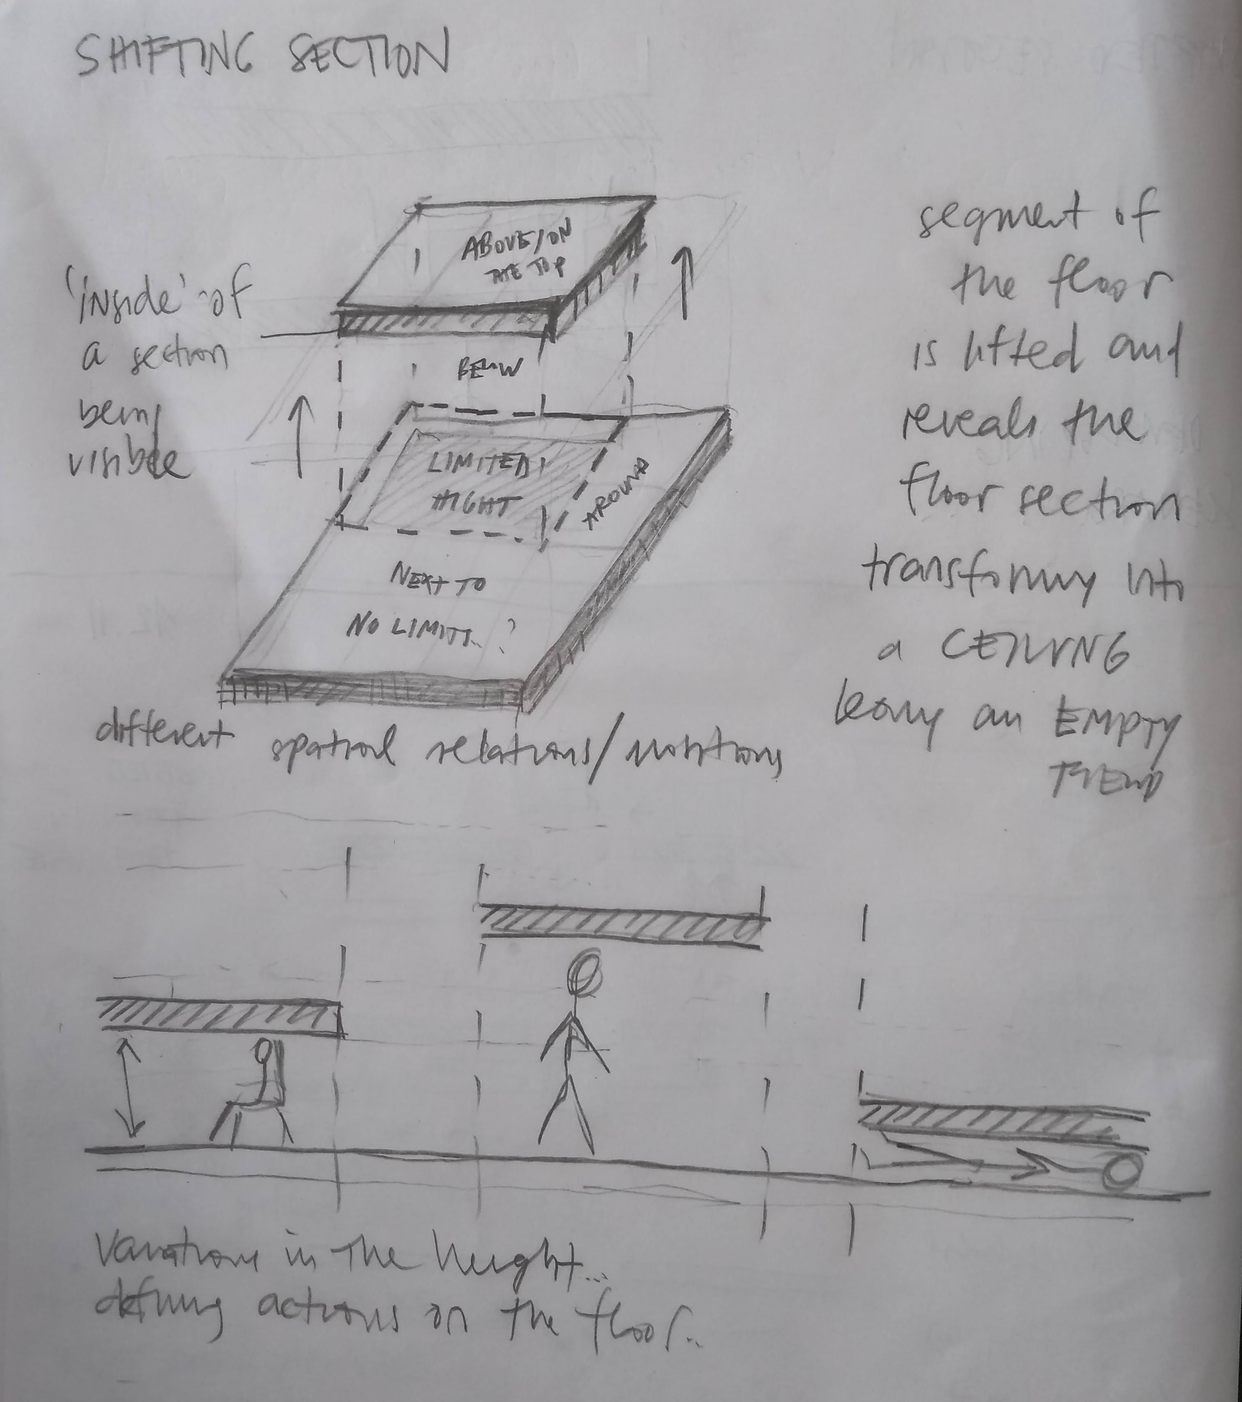 SHIFTING SECTION
'inside' of
a section
being
visible
ABOVE/ON
THE TOP
BELOW
LIMITED
HIGHT
AROUND
NEXT TO
NO LIMITS..?
segment of
the floor
is lifted and
reveals the
floor section
transforming into
a CEILING
leaving an EMPTY
different spatial relations/
variations in the height...
defining actions on the floor..